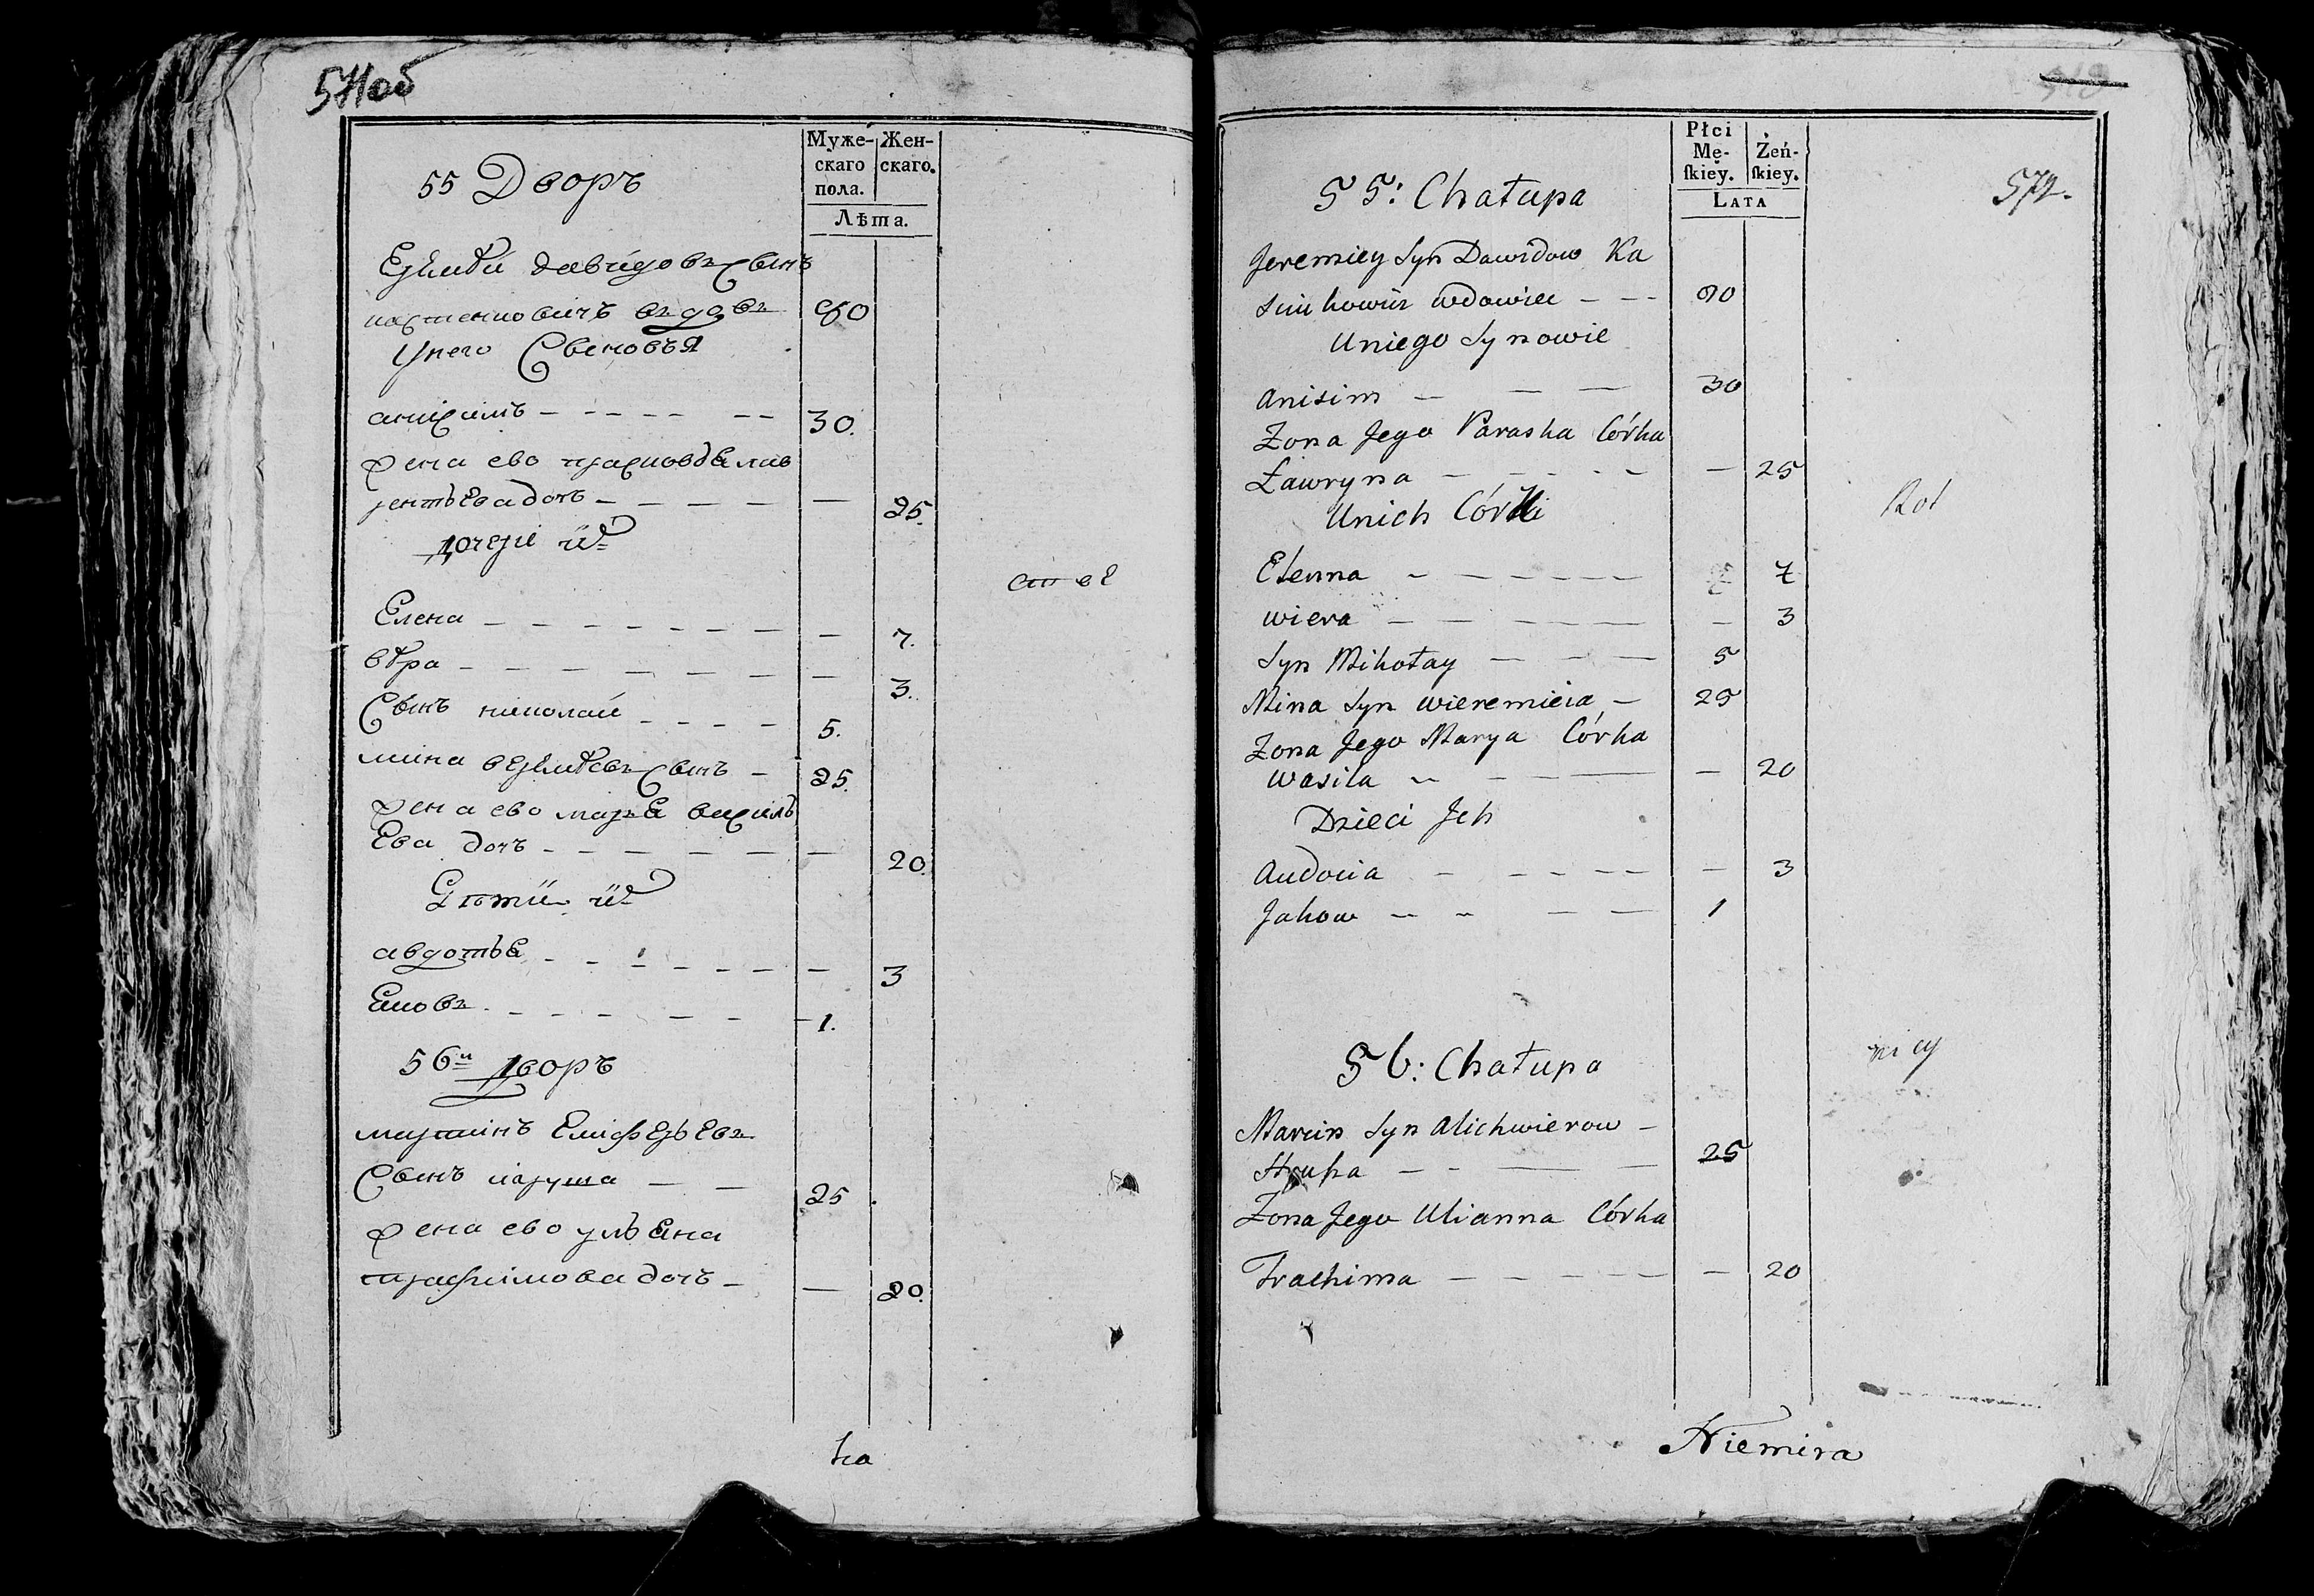 571об
Муже-
скаго
пола.
Жен-
скаго.
Лѣта.
55 Дворъ
Еремѣй давидовъ Сынъ
въдовъ 90
Унего Сыновья
анисимъ 30.
жена ево прасковья лав
рентьева дочь 25.
дочери ихъ
Елена 7.
вѣра 3.
Сынъ николай 5.
мина веремѣевъ Сынъ 25.
жена ево марья василь
Ева дочь 20.
Дѣти ихъ
авдотья 3
Яковъ 1.
56й Дворъ
мартинъ Елисѣерьевъ
Сынъ 25.
жена ево ульяна
трафимова дочь 20.
на
Płci
Mę-
ſkiey.
Żeń-
ſkiey.
LATA
572.
55: Chałupa
Jeremiey Syn Dawidow Ka
wdowiec 90
Uniego Synowie
Anisim 30
Zona Jego Paraska Córka
Ławryna 25
Unich Córki
Elenna 7
Wiera 3
Syn Mikołay 5
Mina Syn Wieremieia 25
Zona Jego Marya Córka
Wasila 20
Dzieci Jch
Audocia 3
Jakow 1
56: Chałupa
Marcin Syn Alichwierow
25
Zona Jego Ulianna Córka
Trachima 20
Niemira